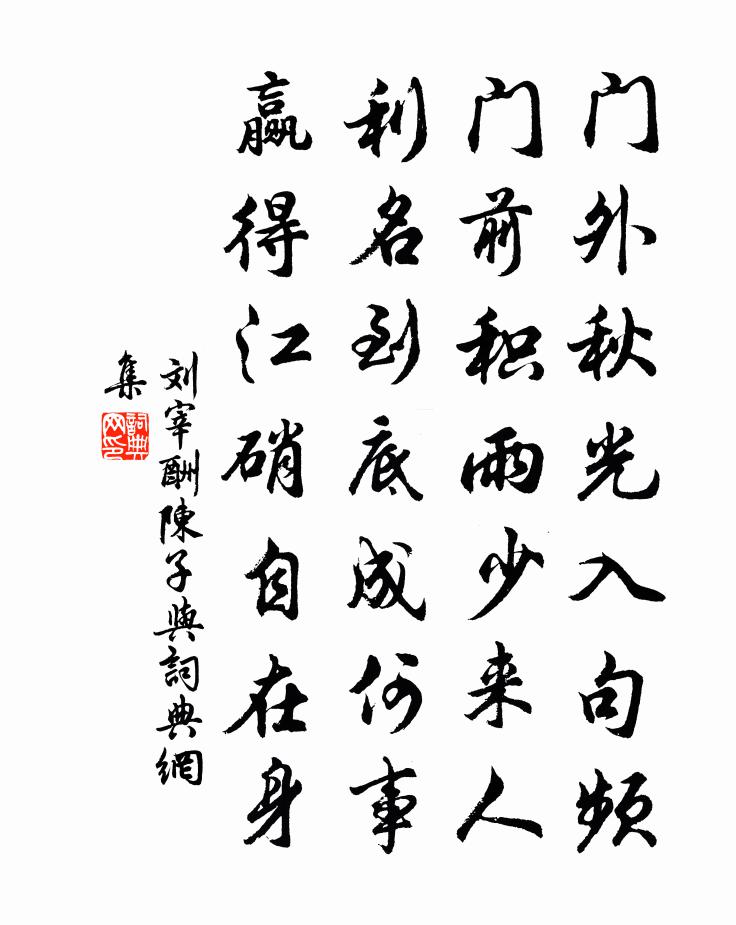 门外秋光入句频
门前积雨少来人
利名到底成何事
赢得江硝自在身
刘宰酬陳子與詞典網
集
詞典网印